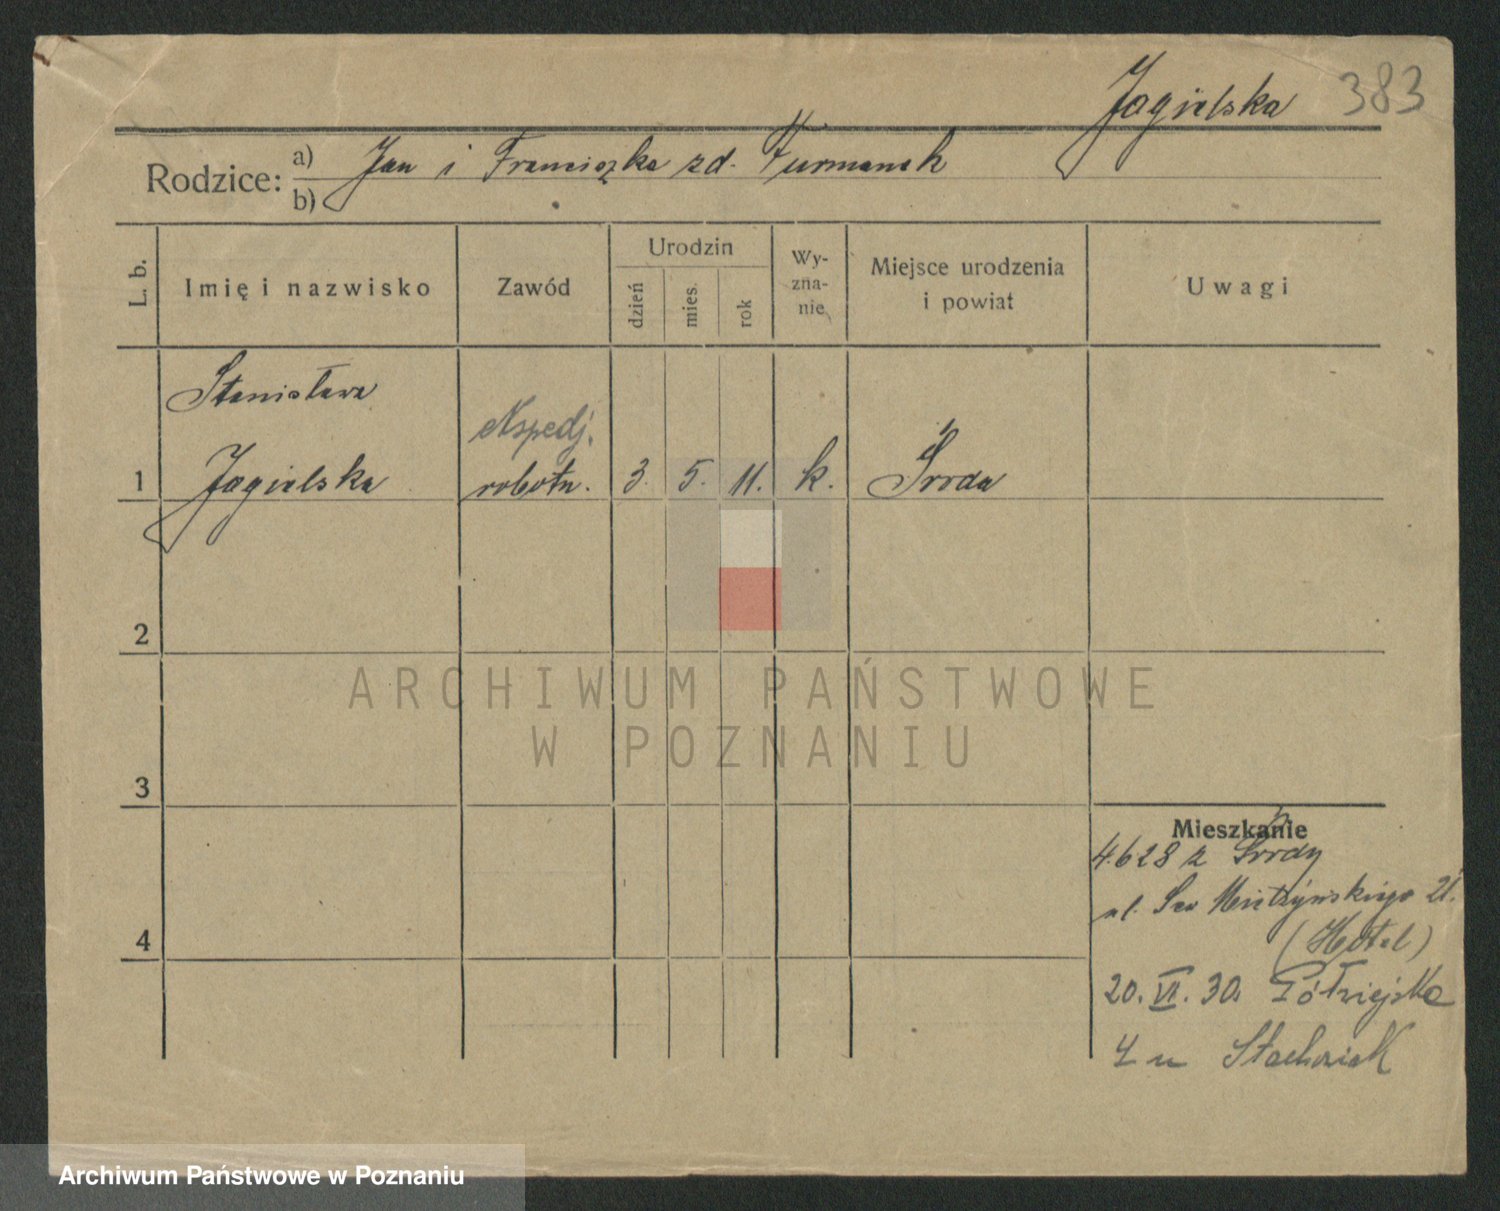 Jagielska 383
Rodzice: a) Jan i Franciszka zd. Furmanek
b)
L. b. Imię i nazwisko Zawód Urodzin dzień mies. rok Wy-zna-nie Miejsce urodzenia i powiat Uwagi
Stanisława
1 Jagielska robotn. 3. 5. 11. k. Środa
2
3
4
Mieszkanie
4.6.28 z Środy
ul. 21.
(Hotel)
20. VI. 30. Półwiejska
4 u Stachowiak
ARCHIWUM PAŃSTWOWE
W POZNANIU
Archiwum Państwowe w Poznaniu